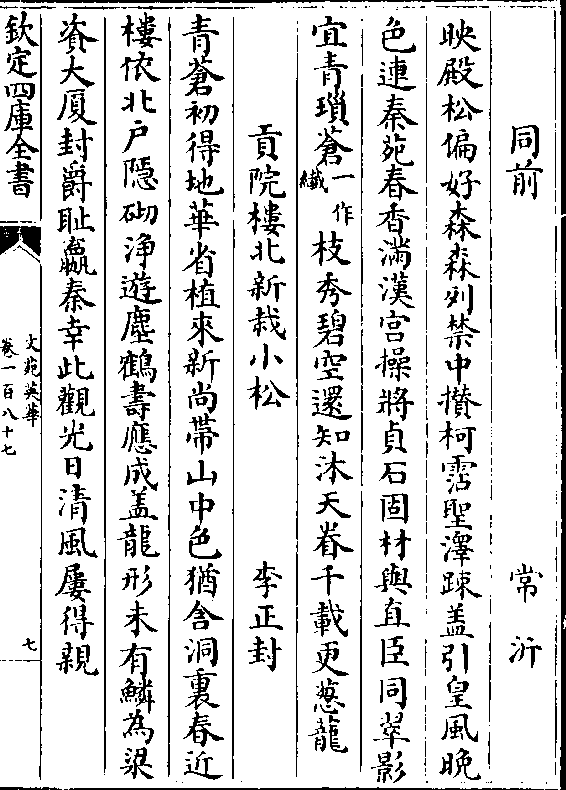 同前 常沂
映殿松偏好森森列禁中攅柯霑聖澤踈盖引皇風晚
色連秦苑春香滿漢宫操將貞石固材與直臣同翠影
宜青瑣蒼一作纎枝秀碧空還知沐天眷千載更葱蘢
貢院樓北新栽小松 李正封
青蒼初得地華省植來新尚帶山中色猶含洞裏春近
樓依北戸隠砌浄遊塵鶴壽應成盖龍形未有鱗為梁
資大厦封爵耻嬴秦幸此觀光日清風屢得親
欽定四庫全書
文苑英華
卷一百八十七
七